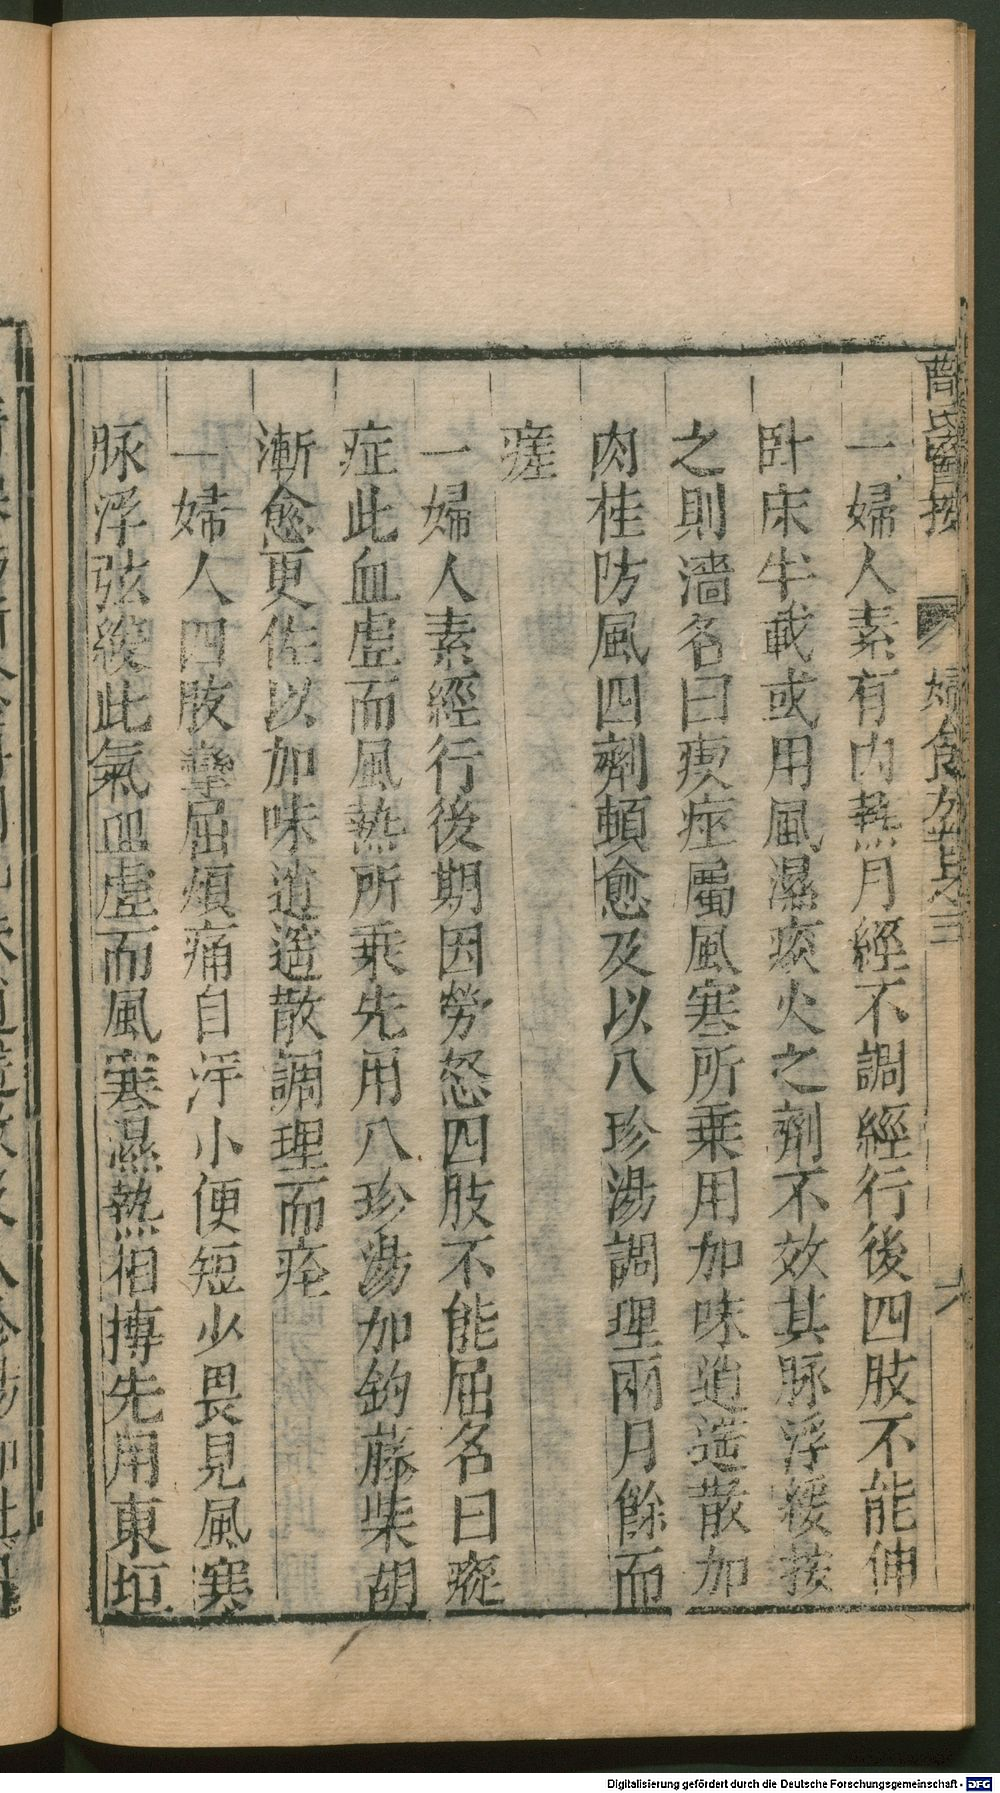 一婦人素有內熱月經不調經行後四肢不能伸
卧床半載或用風濕痰火之劑不效其脉浮緩按
之則濇名曰痿症屬風寒所乗用加味逍遥散加
肉桂防風四劑頓愈及以八珍湯調理兩月餘而
瘥
一婦人素經行後期因勞怒四肢不能屈名曰瘲
症此血虚而風熱所乗先用八珍湯加鈎藤柴胡
漸愈更佐以加味逍遥散調理而痊
一婦人四肢攣屈煩痛自汗小便短少畏見風寒
脉浮弦緩此氣血虚而風寒濕熱相搏先用東垣
醫按
婦
六
Digitalisierung gefördert durch die Deutsche Forschungsgemeinschaft - DFG